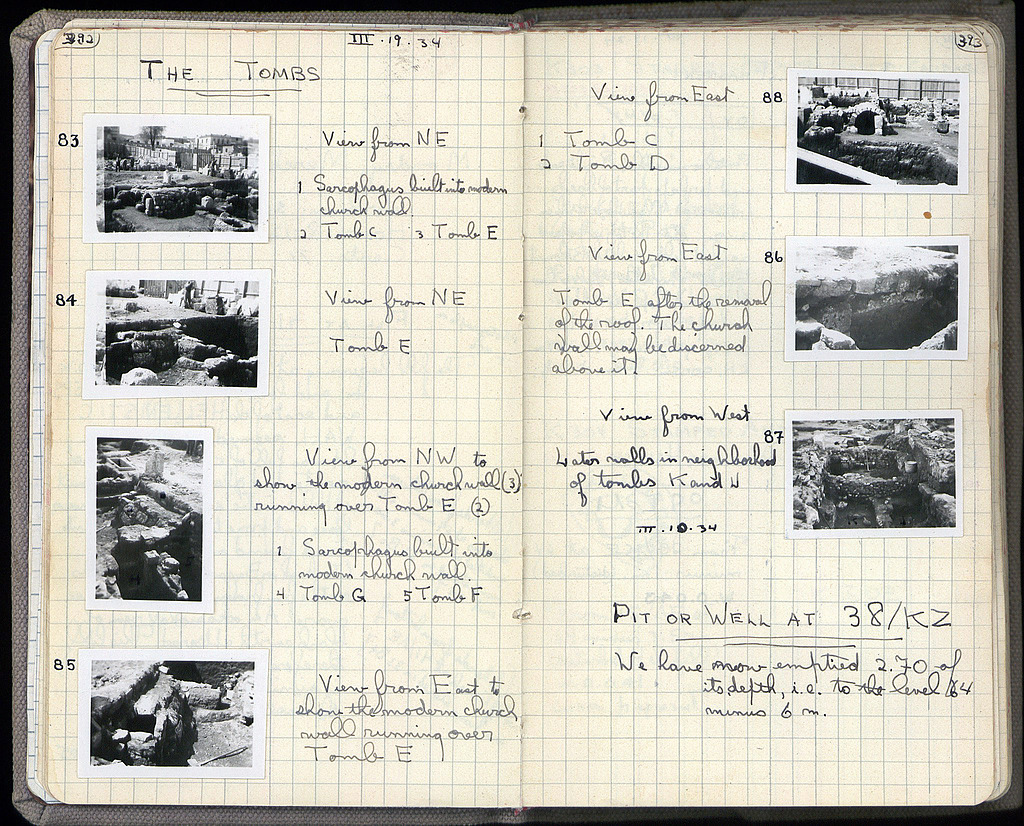 392
III · 19 . 34
THE TOMBS
83
View from NE
1 Sarcophagus built into modern
church wall.
2 Tomb C 3 Tomb E
84
View from NE
Tomb E
View from NW to
show the modern church wall (3)
running over Tomb E (2)
1 Sarcophagus built into
modern church wall.
4 Tomb G 5 Tomb F
85
View from East to
show the modern church
wall running over
Tomb E
393
View from East 88
1 Tomb C
2 Tomb D
View from East 86
Tomb E after the removal
of the roof. The church
wall may be discerned
above it.
View from West
87
Later walls in neighborhood
of tombs K and
III · 10 . 34
PIT OR WELL AT 38/KZ
We have now emptied 2.70 of
its depth, i.e. to the level 164
minus 6 m.